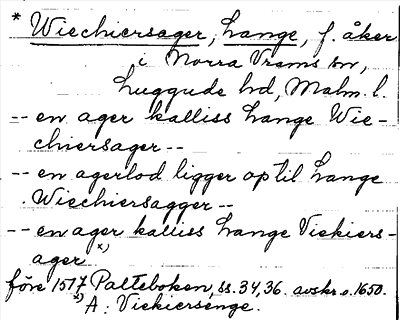 * Wiechiersager, Lange, f. åker
i Norra Vrams sn,
Luggude hd, Malm. l.
-- en ager kalliss Lange Wie-
chiersager --
-- en agerlod ligger op til Lange
Wiechiersagger --
-- en ager kaliss Lange Viekiers-
ager x)
före 1517 Palteboken, ss. 34, 36. avskr. o. 1650.
x) A: Viekiersenge.